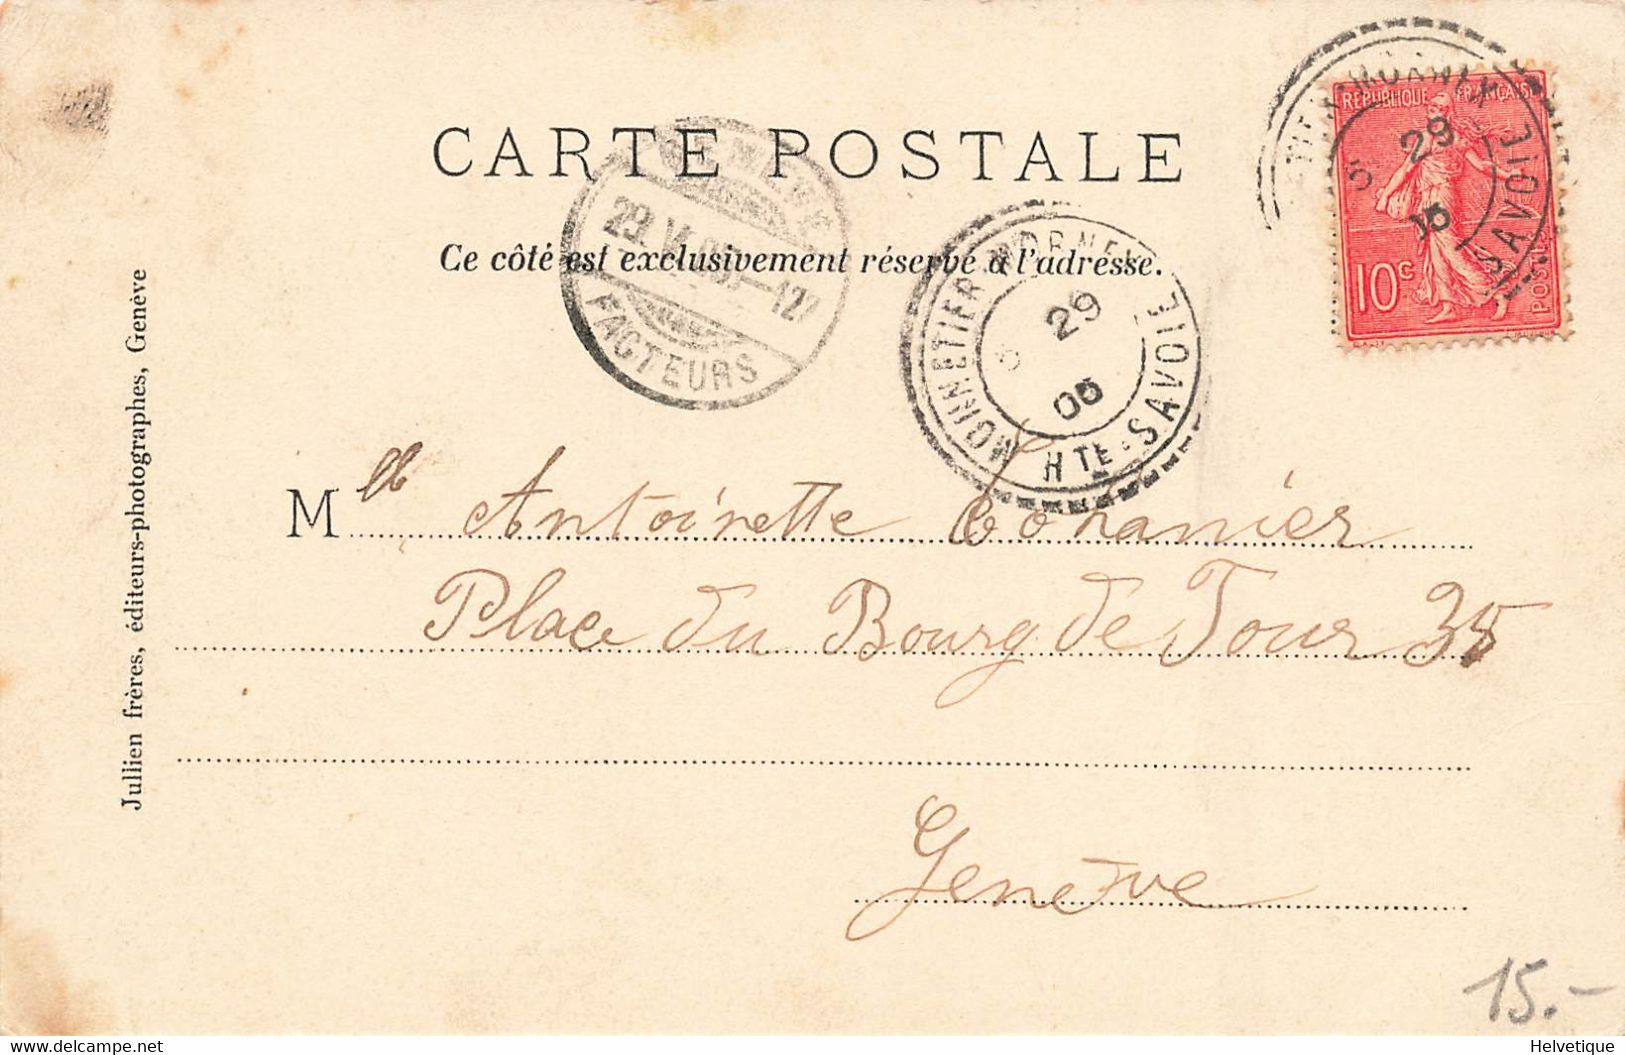 CARTE POSTALE
Ce côté est exclusivement réservé à l'adresse.
RÉPUBLIQUE FRANÇAISE
10c
POSTES
29
SAVOIE
29.VI.05.-12
FACTEURS
MONNETIER-MORNEX
29
05
HTE-SAVOIE
Mlle Antoinette
Place du Bourg de Four 35
Genève
Jullien frères, éditeurs-photographes, Genève
15.-
delcampe.net
Helvetique